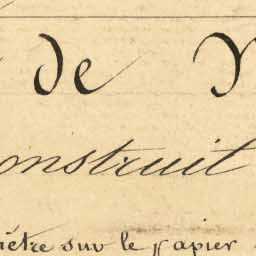 de
onstruit
être sur le papier